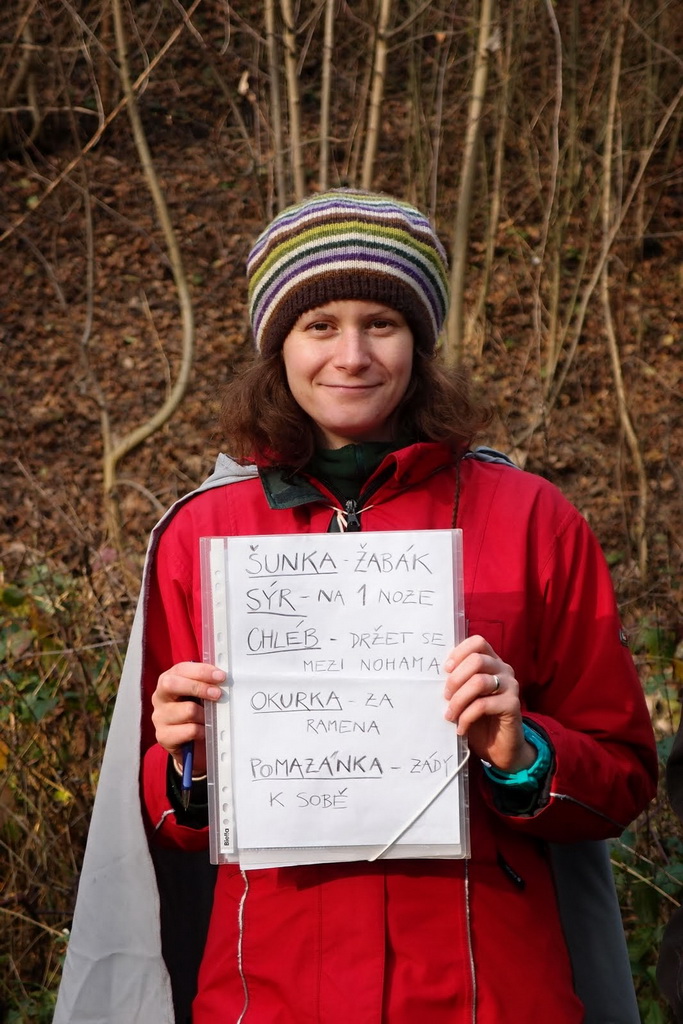 ŠUNKA - ŽABÁK
SÝR - NA 1 NOZE
CHLÉB - DRŽET SE
MEZI NOHAMA
OKURKA - ZA
RAMENA
POMAZÁNKA - ZÁDY
K SOBĚ
Biella